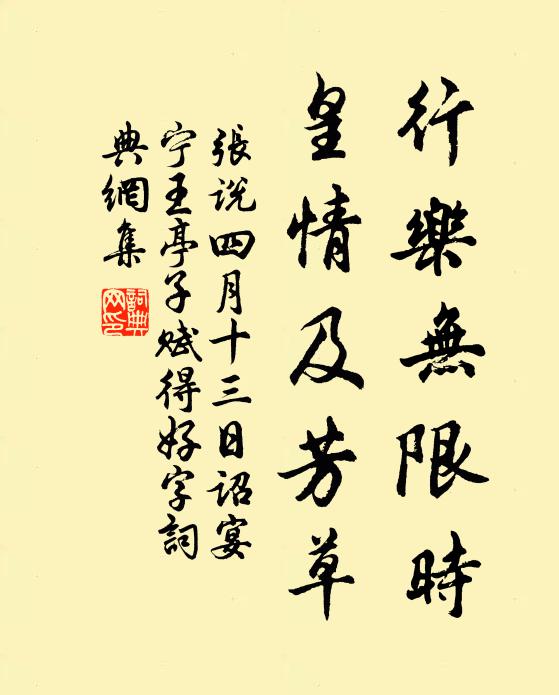 行樂無限時
皇情及芳草
張説四月十三日詔宴
宁王亭子賦得好字詞
典網集
詞典网印